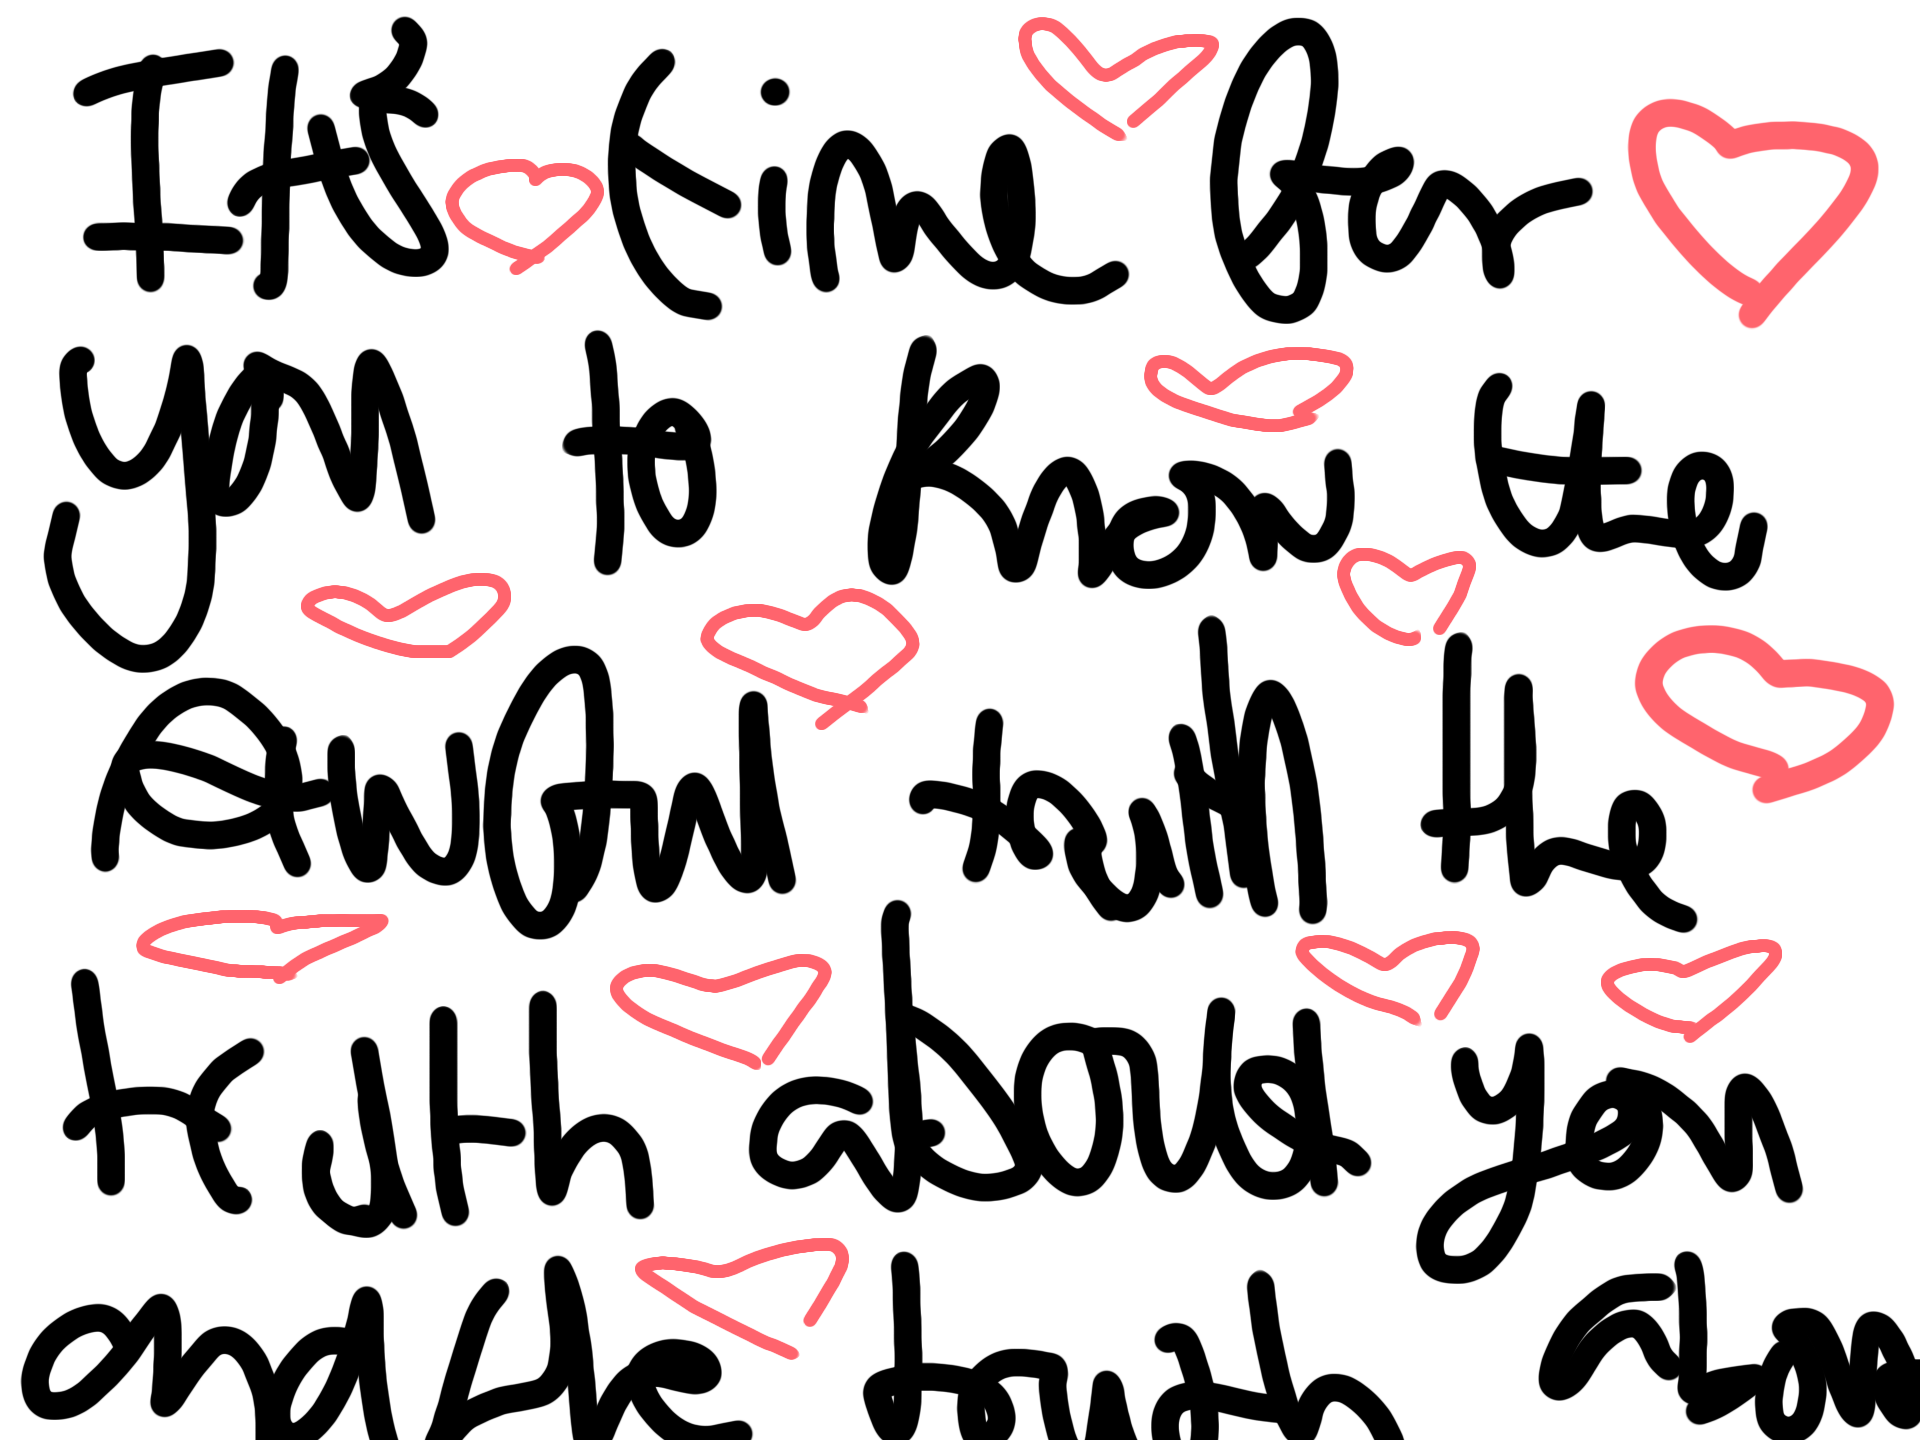 It's time for
you to know the
Awful truth the
truth about you
and the truth abou